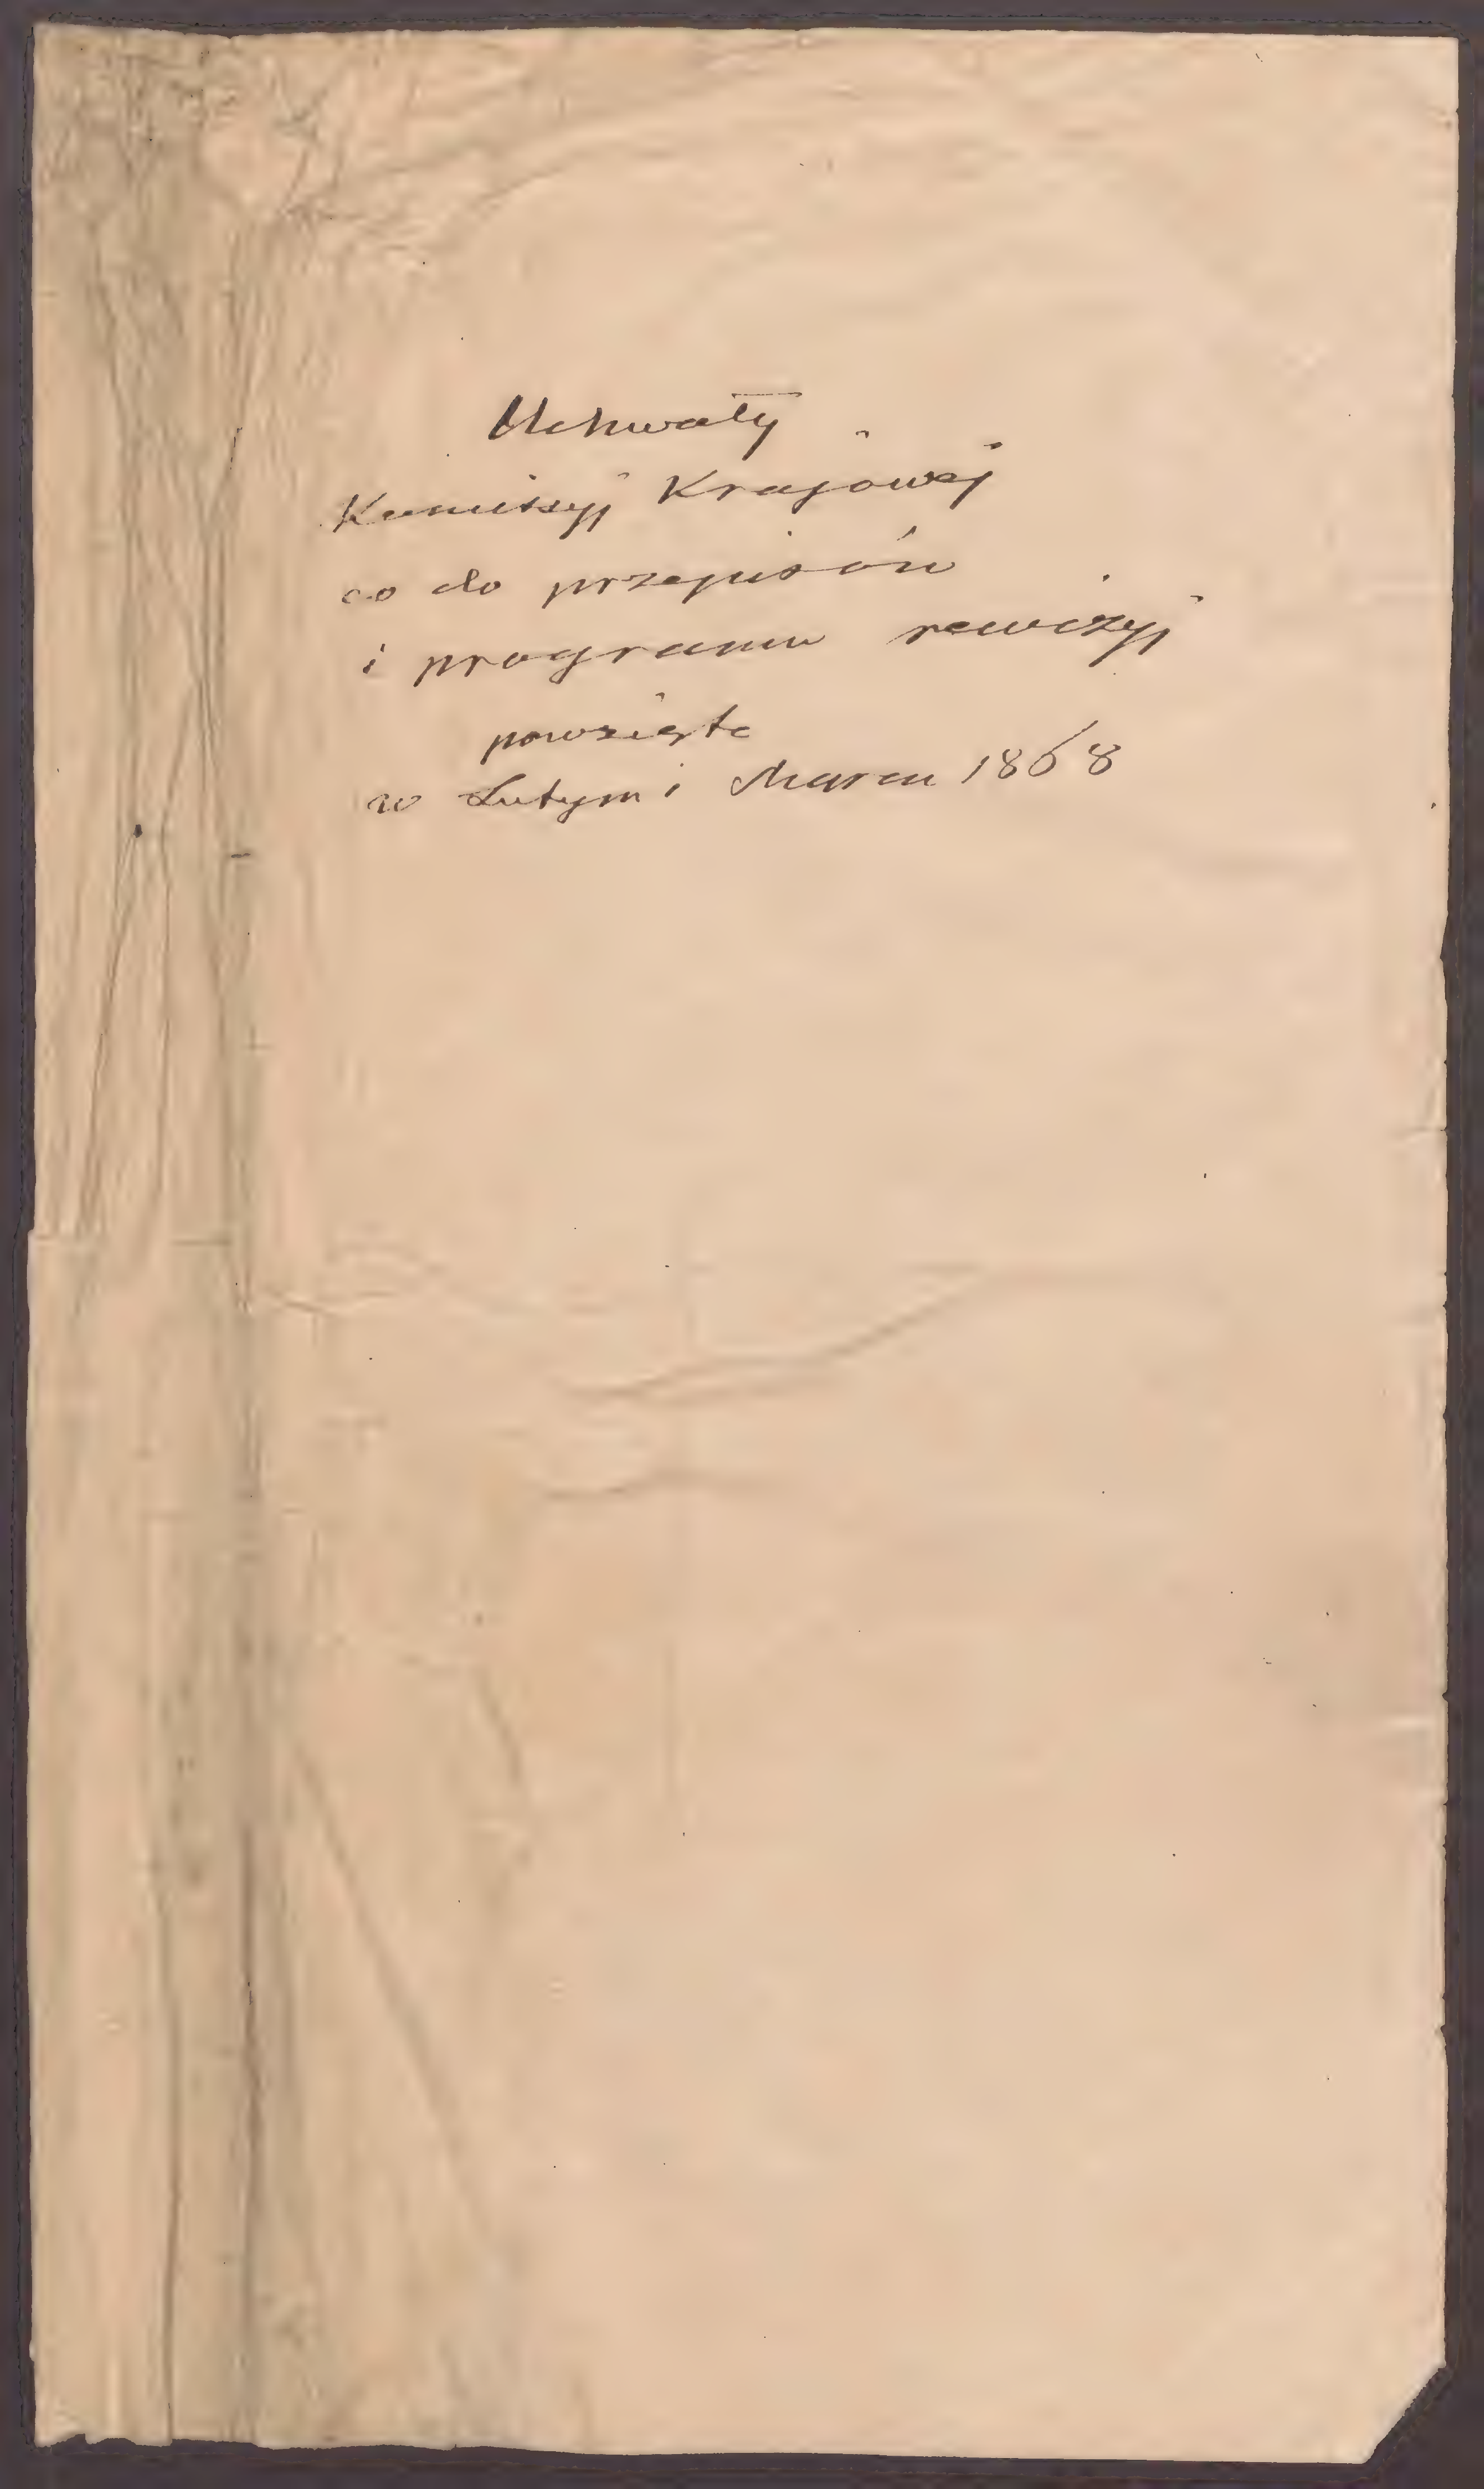 Uchwały
Komissyj Krajowej
co do przepisów
i programu rewizyj
powzięte
w Lutym i Marcu 1868